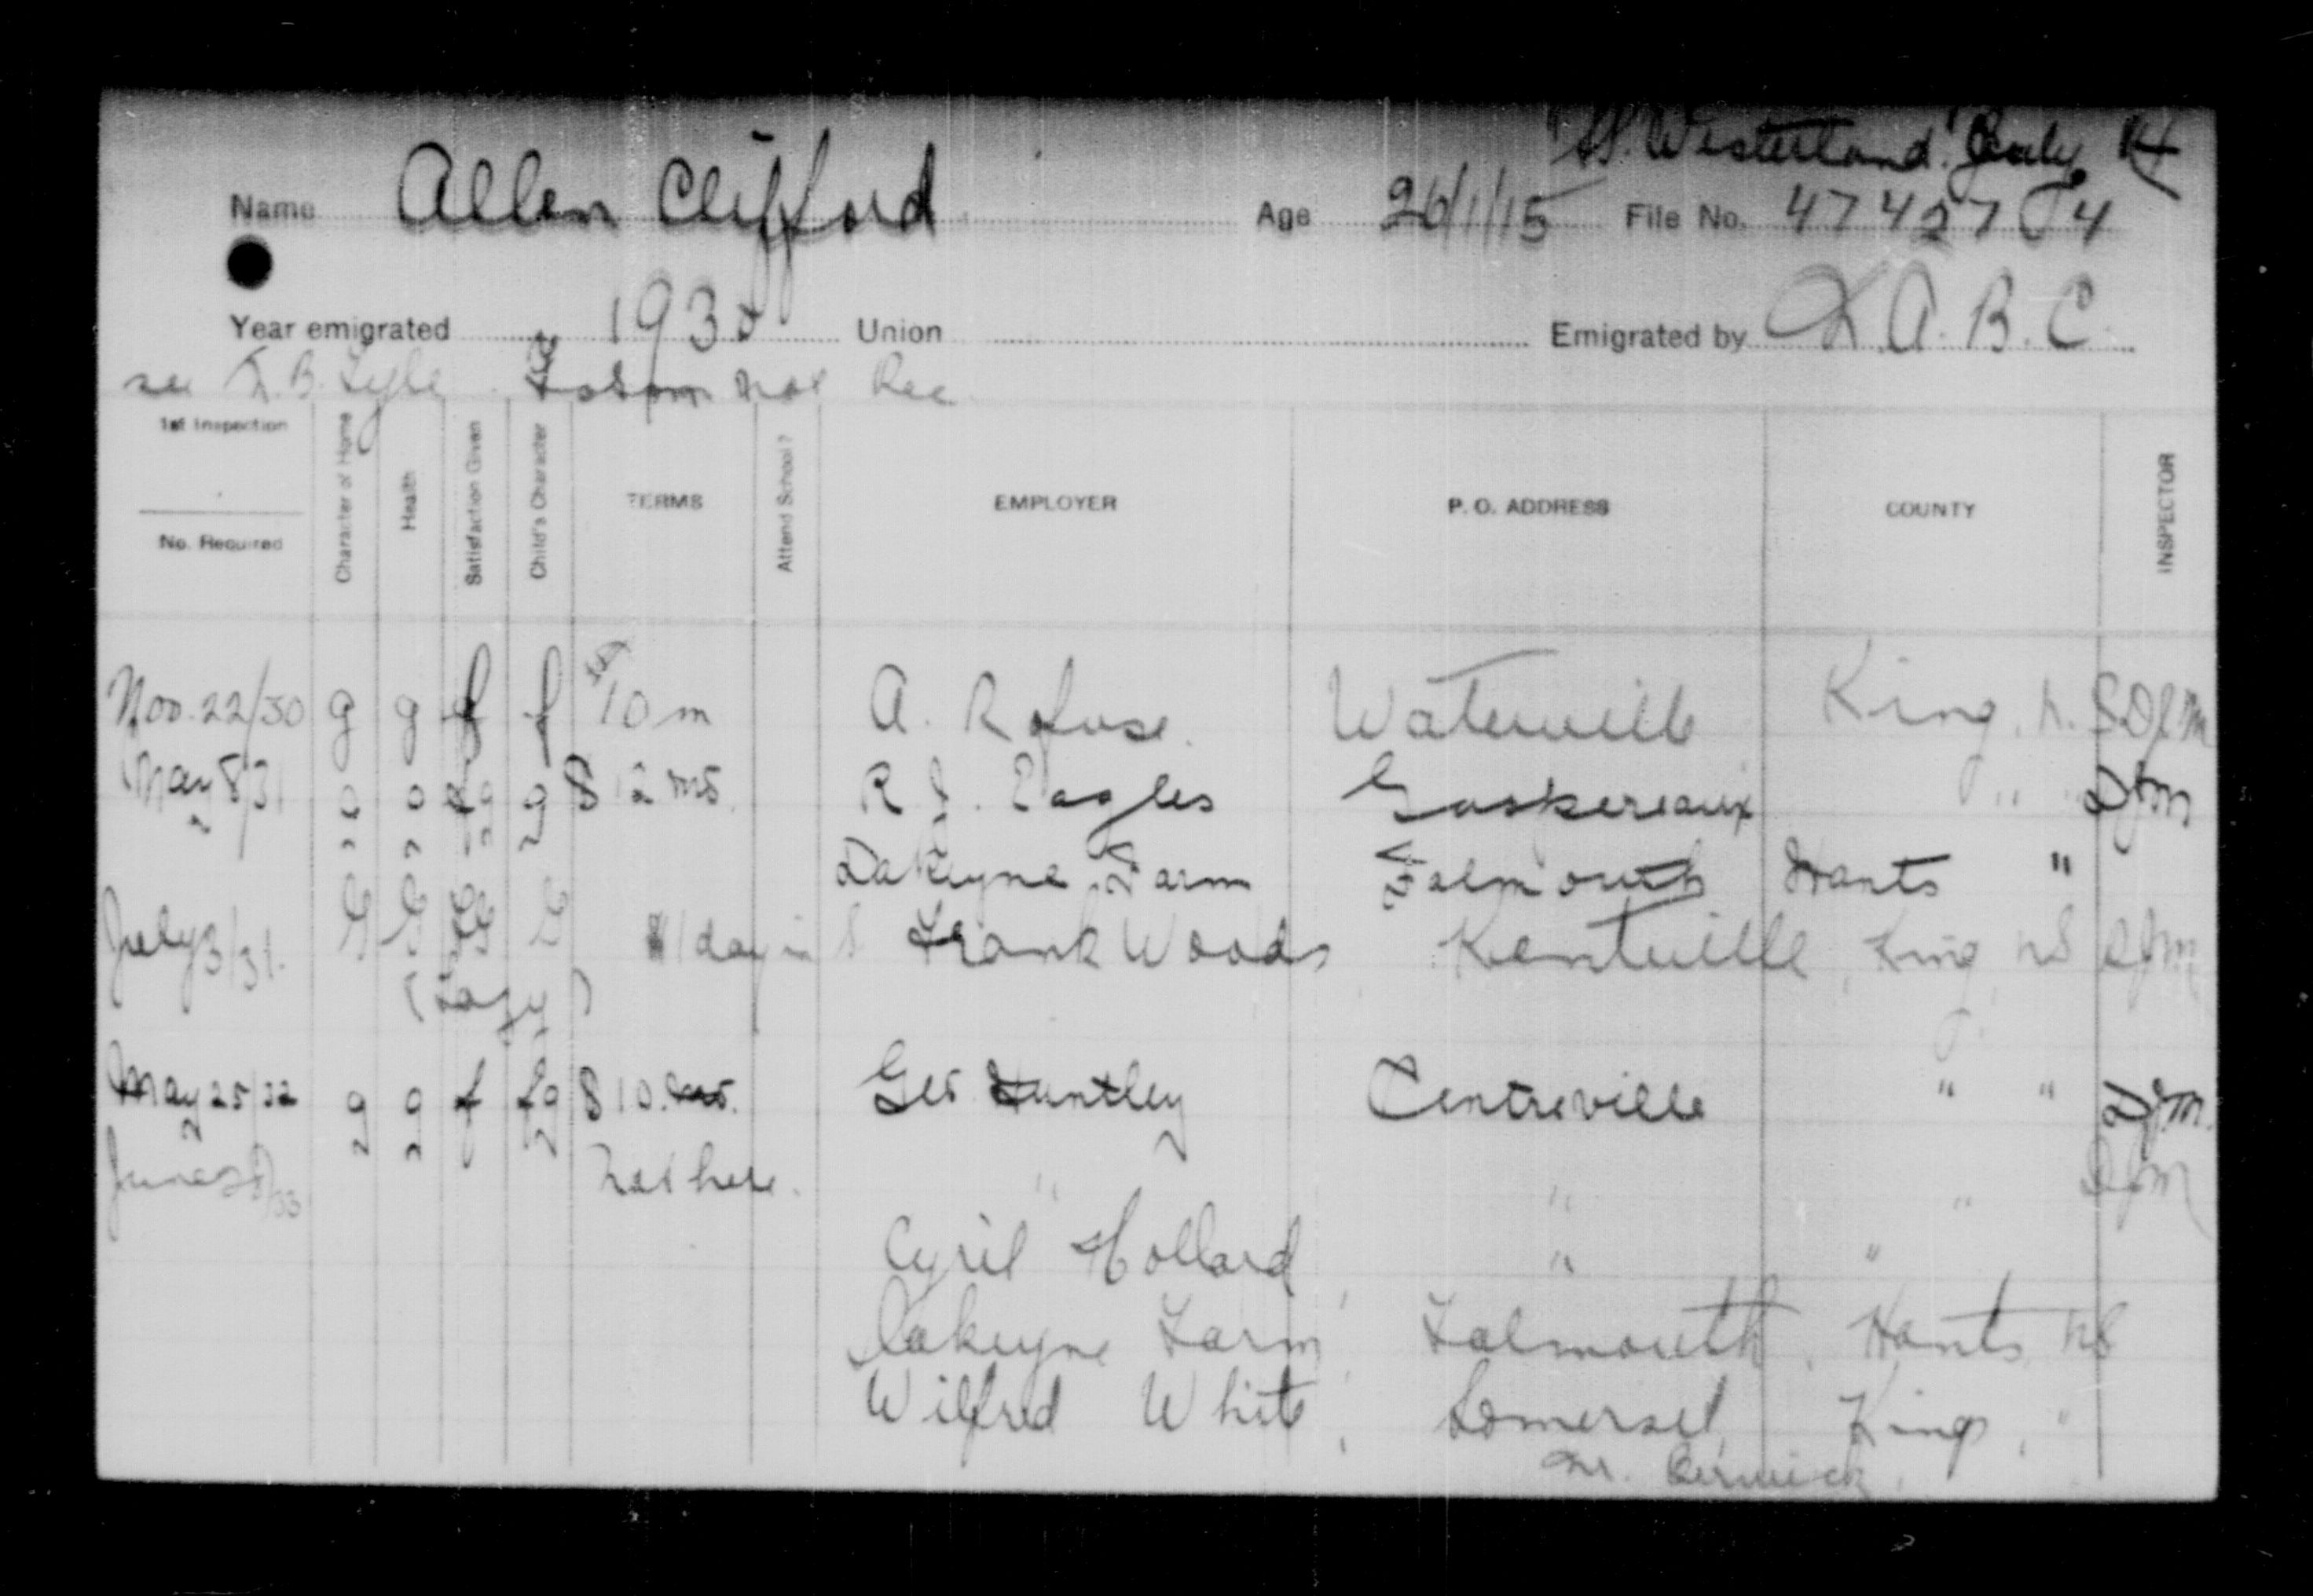 SS. Westerland. July
Name Allen Clifford Age 26/1/15 File No. 47427
Year emigrated 1930 Union Emigrated by A. B. C.
see Lyle not Rec
1st Inspection
No. Required
Character of Home
Health
Satisfaction Given
Child's Character
TERMS
Attend School?
EMPLOYER
P. O. ADDRESS
COUNTY
INSPECTOR
Nov. 22/30 g g f f 10 m A. Rafuse. Waterville King, N.S. DJM
May 8/31 g g fg g $12 ms. R J. Eagles Gaskereaux " DJM
Dakeyne Farm Falmouth Hants "
July 3/31. G G G $1 day in Frank Woods Kentville, King, NS DJM
(Lazy)
May 25/32 g g f fg $10. Geo Huntley Centreville " " DJM.
June /33 Not here. " " " DJM
Cyril Hollard " "
Dakeyne Farm, Falmouth, Hants NS
Wilfred White, Somerset, King, "
Nr. Berwick.